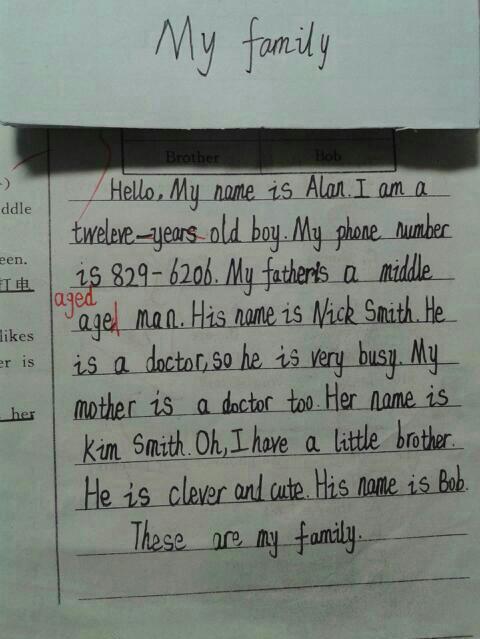 My family
Brother Bob
)
ddle
Hello, My name is Alan. I am a
tweleve-years old boy. My phone number
een.
is 829-6206. My father's a middle
打电
aged
aged man. His name is Nick Smith. He
likes
is a doctor, so he is very busy. My
er is
mother is a doctor too. Her name is
her
Kim Smith. Oh, I have a little brother.
He is clever and cute. His name is Bob.
These are my family.